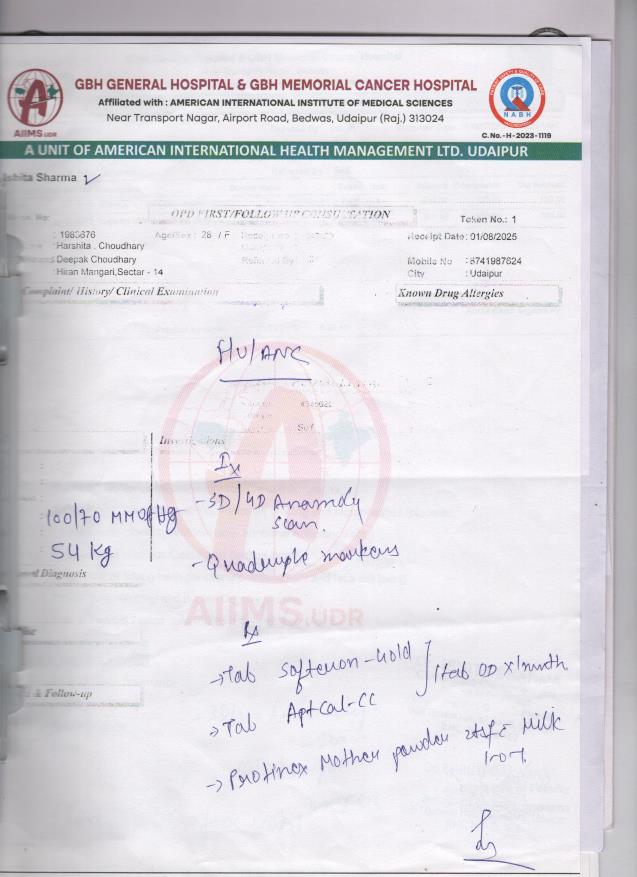 GBH GENERAL HOSPITAL & GBH MEMORIAL CANCER HOSPITAL
Affiliated with : AMERICAN INTERNATIONAL INSTITUTE OF MEDICAL SCIENCES
Near Transport Nagar, Airport Road, Bedwas, Udaipur (Raj.) 313024
AIIMS.UDR
NABH
C. No. - H - 2023 - 1119
A UNIT OF AMERICAN INTERNATIONAL HEALTH MANAGEMENT LTD. UDAIPUR
shita Sharma
OPD FIRST/FOLLOW UP CONSULTATION
Token No.: 1
Age/Sex : 28 / F
Receipt Date : 01/08/2025
Harshita . Choudhary
Deepak Choudhary
Mobile No : 8741987624
Hiran Mangari,Sectar - 14
City : Udaipur
Complaint/ History/ Clinical Examination
Known Drug Altergies
FIU/ANC
Investigations
Ix
- 3D/4D Anamoly
Scan.
100/70 MMOfHg
54 Kg
- Quadruple markers
Diagnosis
AIIMS.UDR
Rx
→ Tab Softeron-Gold
1 tab OD x 1 month
→ Tab AptCal-CC
& Follow-up
→ Protinex Mother powder 2tsf c Milk